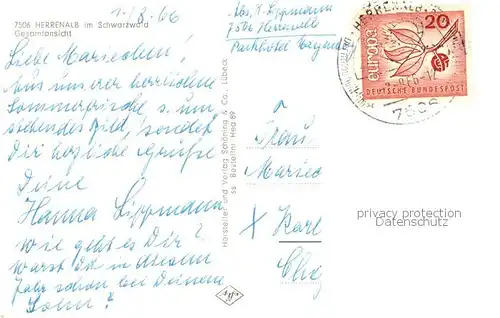 7506 HERRENALB im Schwarzwald
Gesamtansicht
1/8.66
Liebe Mariechen!
Aus unserer herrlichen
Sommerfrische s. um-
stehendes Bild, sendet
Dir herzliche Grüße
Deine
Hanna Lippmann
Wie geht es Dir?
Warst Du in diesem
Jahr schon bei Deinem
Sohn?
Hersteller und Verlag Schöning & Co., Lübeck
ss Bestellnr Hea 89
Abs. H. Lippmann
7506 Herrenalb
Parkhotel
HERRENALB
7506
europa
20
DEUTSCHE BUNDESPOST
Frau
Karl
privacy protection
Datenschutz